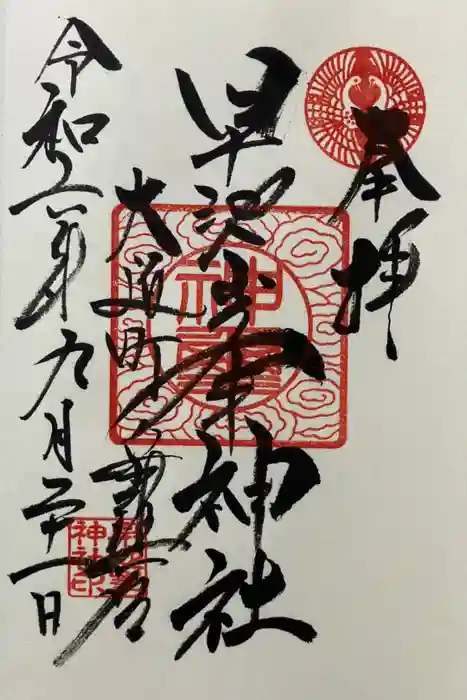 奉拝
早池峯神社
大迫町
令和二年九月二十一日